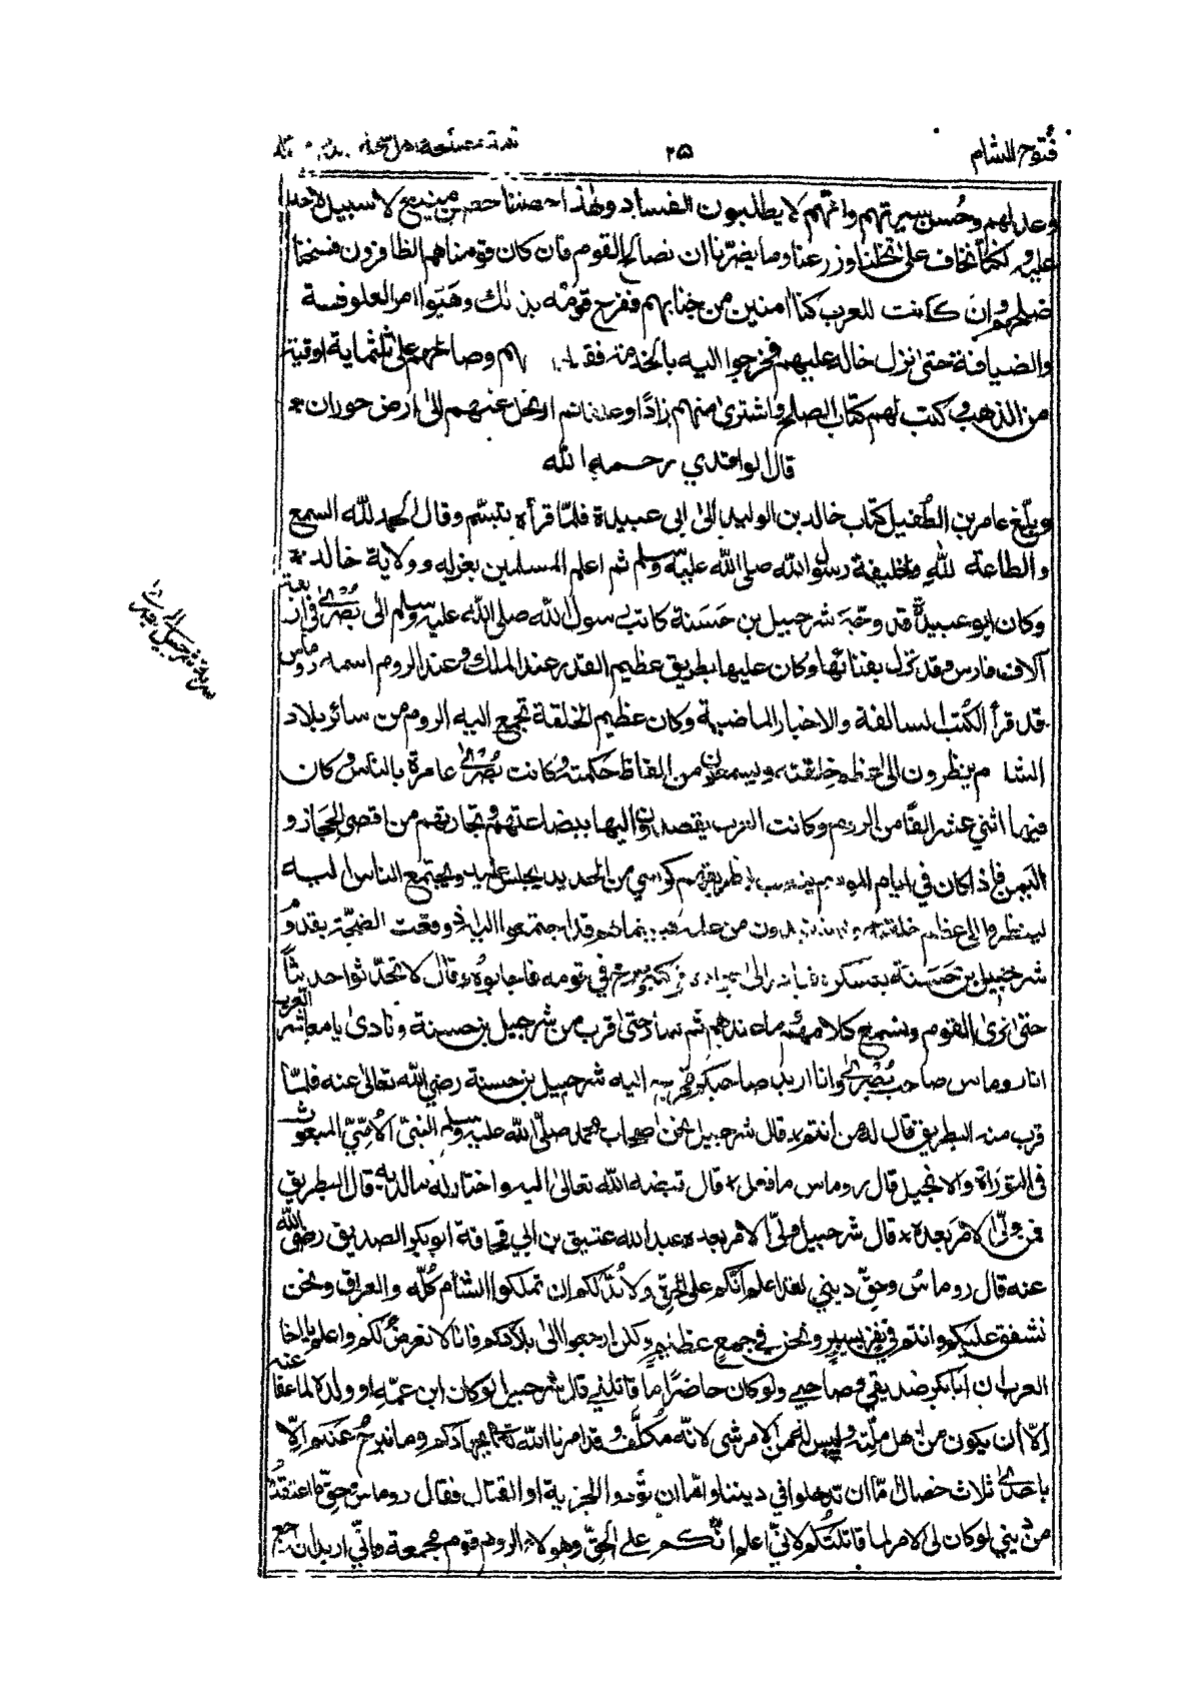 فتوح الشام
٢٥
وعدلهم وحُسن سيرتهم وانّهم لا يطلبون الفساد ولهذا حصننا حصن منيع لا سبيل لاحد
عليه ولكنّا نخاف على نخلنا وزرعنا وما يضرّنا ان نصالح القوم فان كان قومنا هم الظافرون فسخنا
صلحهم وان كانت للعرب كنّا امنين من جنابهم ففرح قومُه بذلك وهَيّوا امر العلوفة
والضيافة حتى نزل خالد عليهم فخرجوا اليه بالخدمة وصالحهم على ثلثماية اوقية
من الذهب وكتب لهم كتاب الصلح واشترى منهم زادًا وعلفا ثم ارتحل عنهم الى ارض حوران
قال الواقدي رحمه الله
وبلّغ عامر بن الطُفيل كتاب خالد بن الوليد الى ابي عبيدة فلمّا قرأه تبسّم وقال الحمد لله السمع
والطاعة للهِ ولخليفة رسول الله صلى الله عليه وسلم ثم اعلم المسلمين بعزله وولاية خالد
وكان ابو عبيدة قد وجّهَ شرحبيل بن حَسَنة كاتب رسول الله صلى الله عليه وسلم الى بُصْرىٰ في اربعة
آلاف فارس وقد نزل بفنائها وكان عليها بطريق عظيم القدر عند الملك وعند الروم اسمه روماس
قد قرأ الكُتب السالفة والاخبار الماضية وكان عظيم الخلقة تجمع اليه الروم من سائر بلاد
الشام ينظرون الى عظم خلقته ويسمعون من الفاظ حكمته وكانت بُصْرىٰ عامرة بالناس وكان
فيها اثني عشر الفًا من الروم وكانت العرب يقصدون اليها ببضاعتهم وتجارتهم من اقصى الحجاز و
اليمن فاذا كان في ايام الموسم ينصب لبطريقهم كرسي من الحديد يجلس عليه ويجتمع الناس اليه
لينظروا الى عظم خلقته من علمه فبينما هم قد اجتمعوا اليه اذ وقعت الضجّة بقدوم
شرحبيل بن حَسَنَة بعسكره فبادر الى جواده فركبه وصرخ في قومه فاجابوه وقال لا تحدّثوا حديثاً
حتى ارى القوم واسمع كلامهم وما عندهم ثم سار حتى قرب من شرحبيل بن حسنة ونادى يا معاشر العرب
انا روماس صاحب بُصْرىٰ وانا اريد صاحبكم فخرج اليه شرحبيل بن حسنة رضي الله تعالى عنه فلمّا
قرب منه البطريق قال له من انتم قال شرحبيل نحن اصحاب محمد صلى الله عليه وسلم النبيّ الاُمّيّ المبعوث
في التوراة والانجيل قال روماس ما فعل قال قبضه الله تعالى اليه واختار له ما لديه قال البطريق
فمن ولّى الامر بعده قال شرحبيل ولّى الامر بعده عبد الله عتيق بن ابي قحافة ابو بكر الصديق رضي الله
عنه قال روماس وحقّ ديني لقد اعلم انّكم على الحق ولابُدّ لكم ان تملكوا الشام كُلّه والعراق ونحن
نشفق عليكم وانتم في نفر يسير ونحن في جمع عظيم ولكن ارجعوا الى بلادكم فانا لا نعرض لكم واعلم يا اخا
العرب ان ابا بكر صديقي وصاحبي ولو كان حاضرًا ما قاتلني قال شرحبيل لو كان ابن عمّه او ولده لما عفا عنه
الّا أن يكون من اهل ملّته وليس له من الامر شي لانّه مُكلَّف وقد امرنا الله تعالى بجهادكم وما نبرحُ عنكم الّا
باحدىٰ ثلاث خصال امّا ان تدخلوا في ديننا وامّا ان تؤدوا الجزية او القتال فقال روماس وحقّ ما اعتقدُ
من ديني لو كان لي الامر لما قاتلتكم لانّي اعلم انّكم على الحقّ وهولاء الروم قوم مجمعة وانّي اريد ان ارجع